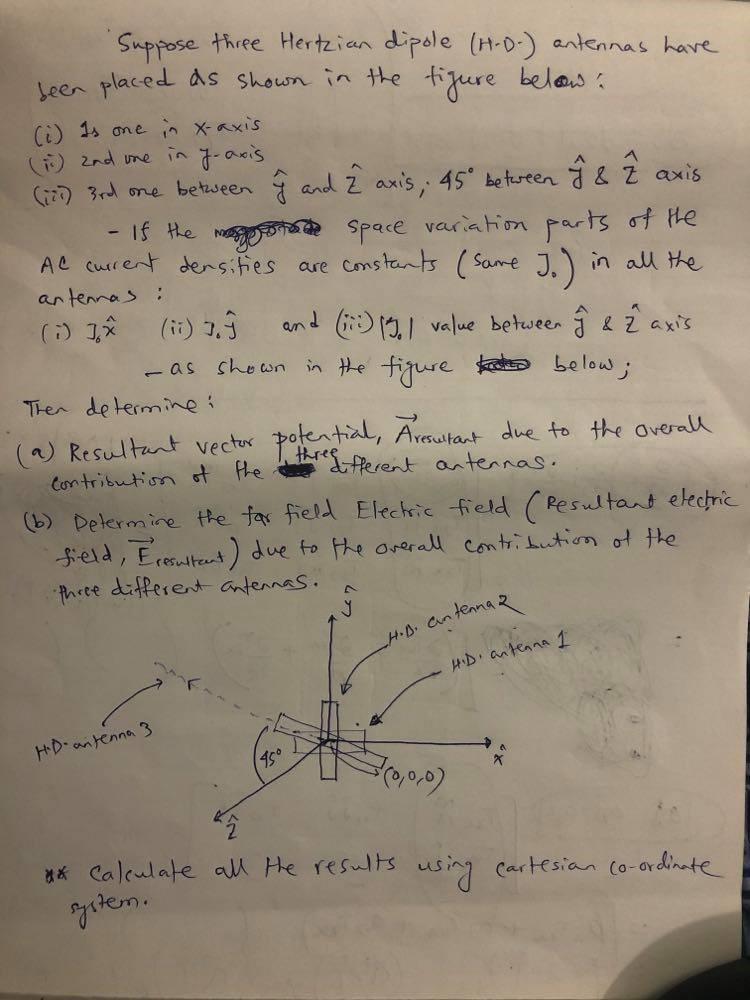 Suppose three Hertzian dipole (H.D.) antennas have
been placed as shown in the figure below:
(i) Is one in x-axis
(ii) 2nd one in y-axis
(iii) 3rd one between ŷ and ẑ axis, 45° between ŷ & ẑ axis
- If the space variation parts of the
AC current densities are constants (same J₀) in all the
antennas:
(i) J₀x̂ (ii) J₀ŷ and (iii) |J₀| value between ŷ & ẑ axis
- as shown in the figure below;
Then determine:
(a) Resultant vector potential, A⃗resultant due to the overall
contribution of the three different antennas.
(b) Determine the far field Electric field (Resultant electric
field, E⃗resultant) due to the overall contribution of the
three different antennas.
ŷ
H.D. antenna 2
H.D. antenna 1
r
H.D. antenna 3
45°
x̂
(0,0,0)
ẑ
** Calculate all the results using cartesian co-ordinate
system.